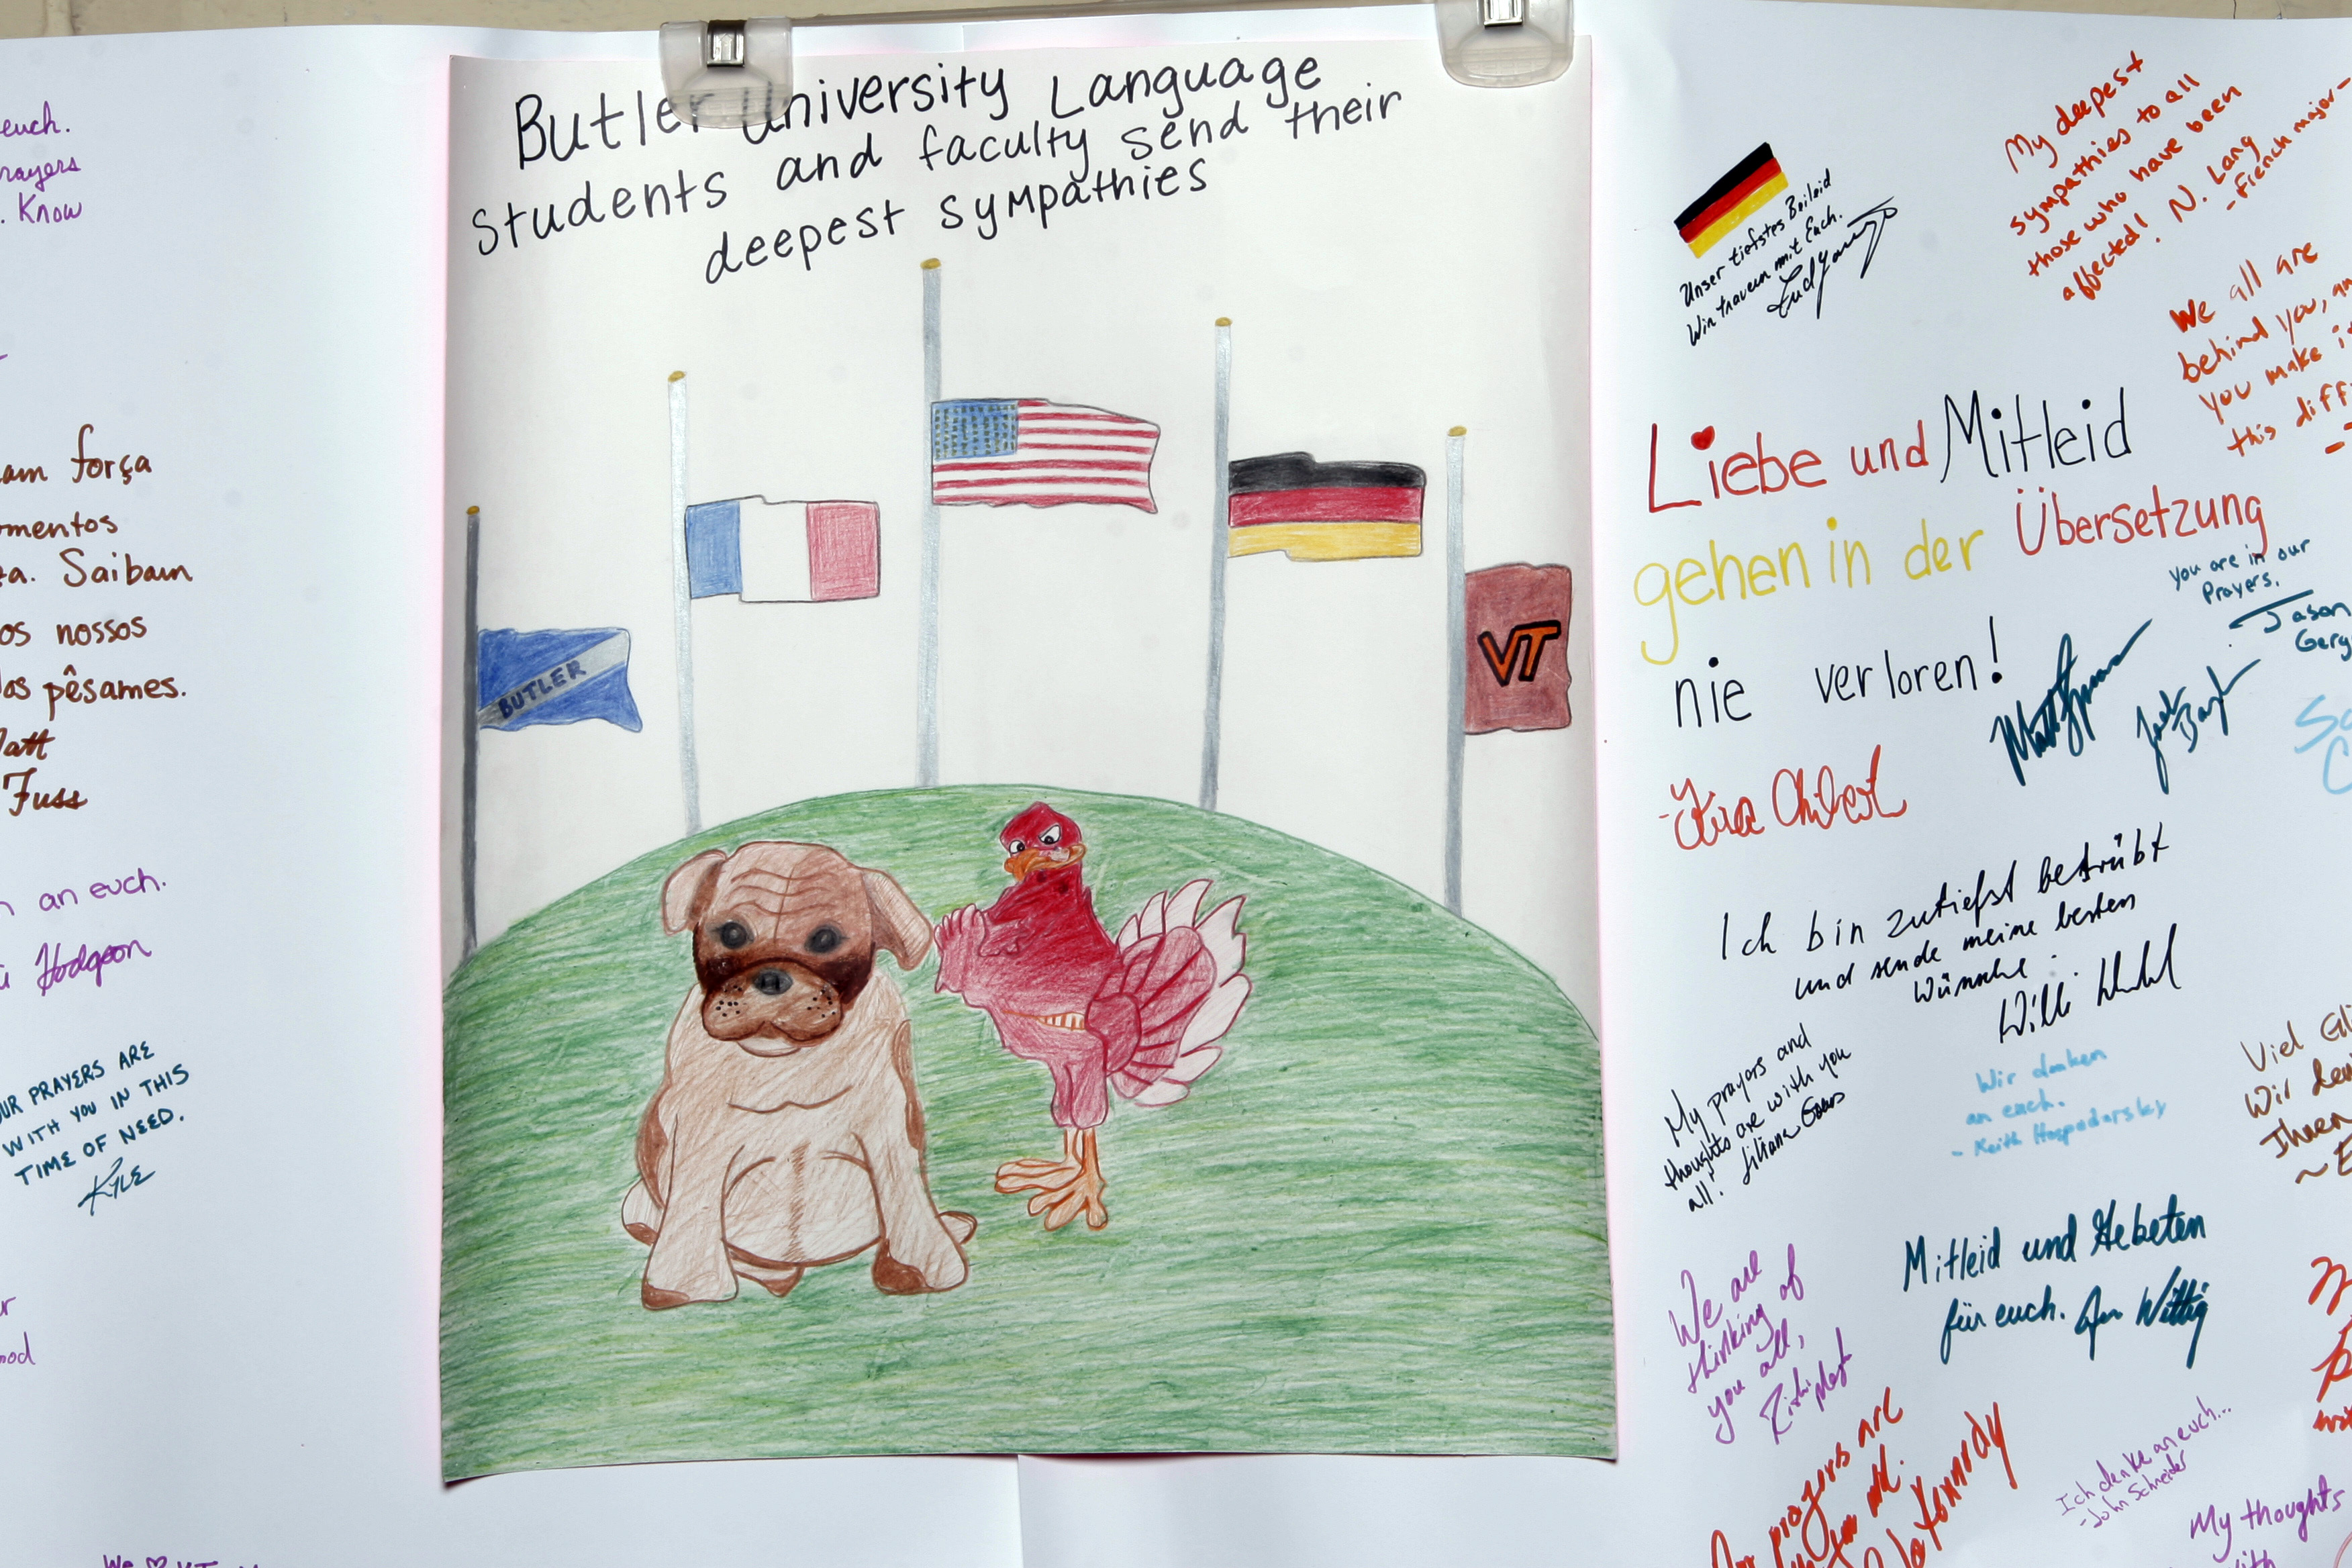 Butler University Language
Students and faculty send their
deepest sympathies
BUTLER
VT
euch.
rayers
. Know
am força
omentos
ta. Saibam
os nossos
os pêsames.
Matt
Fuss
an euch.
Hodgson
UR PRAYERS ARE
WITH YOU IN THIS
TIME OF NEED.
KYLE
We ♡ VT
Unser tiefstes Beileid
Wir trauern mit Euch.
My deepest
sympathies to all
those who have been
affected! N. Lang
-French major-
We all are
behind you, an
you make i
this diff
Liebe und Mitleid
gehen in der Übersetzung
nie verloren!
you are in our
Prayers.
Jason
Gerg
Ich bin zutiefst betrübt
und sende meine besten
Wünsche.
Willi
My prayers and
thoughts are with you
all. Liliana
Wir denken
an euch.
- Keith Hospodarsky
Viel Gl
Wir den
Ihnen
~E
Mitleid und Gebeten
für euch. Wittig
We are
thinking of
you all,
prayers are
Kennedy
Ich denke an euch...
-John Schneider
My thoughts
with